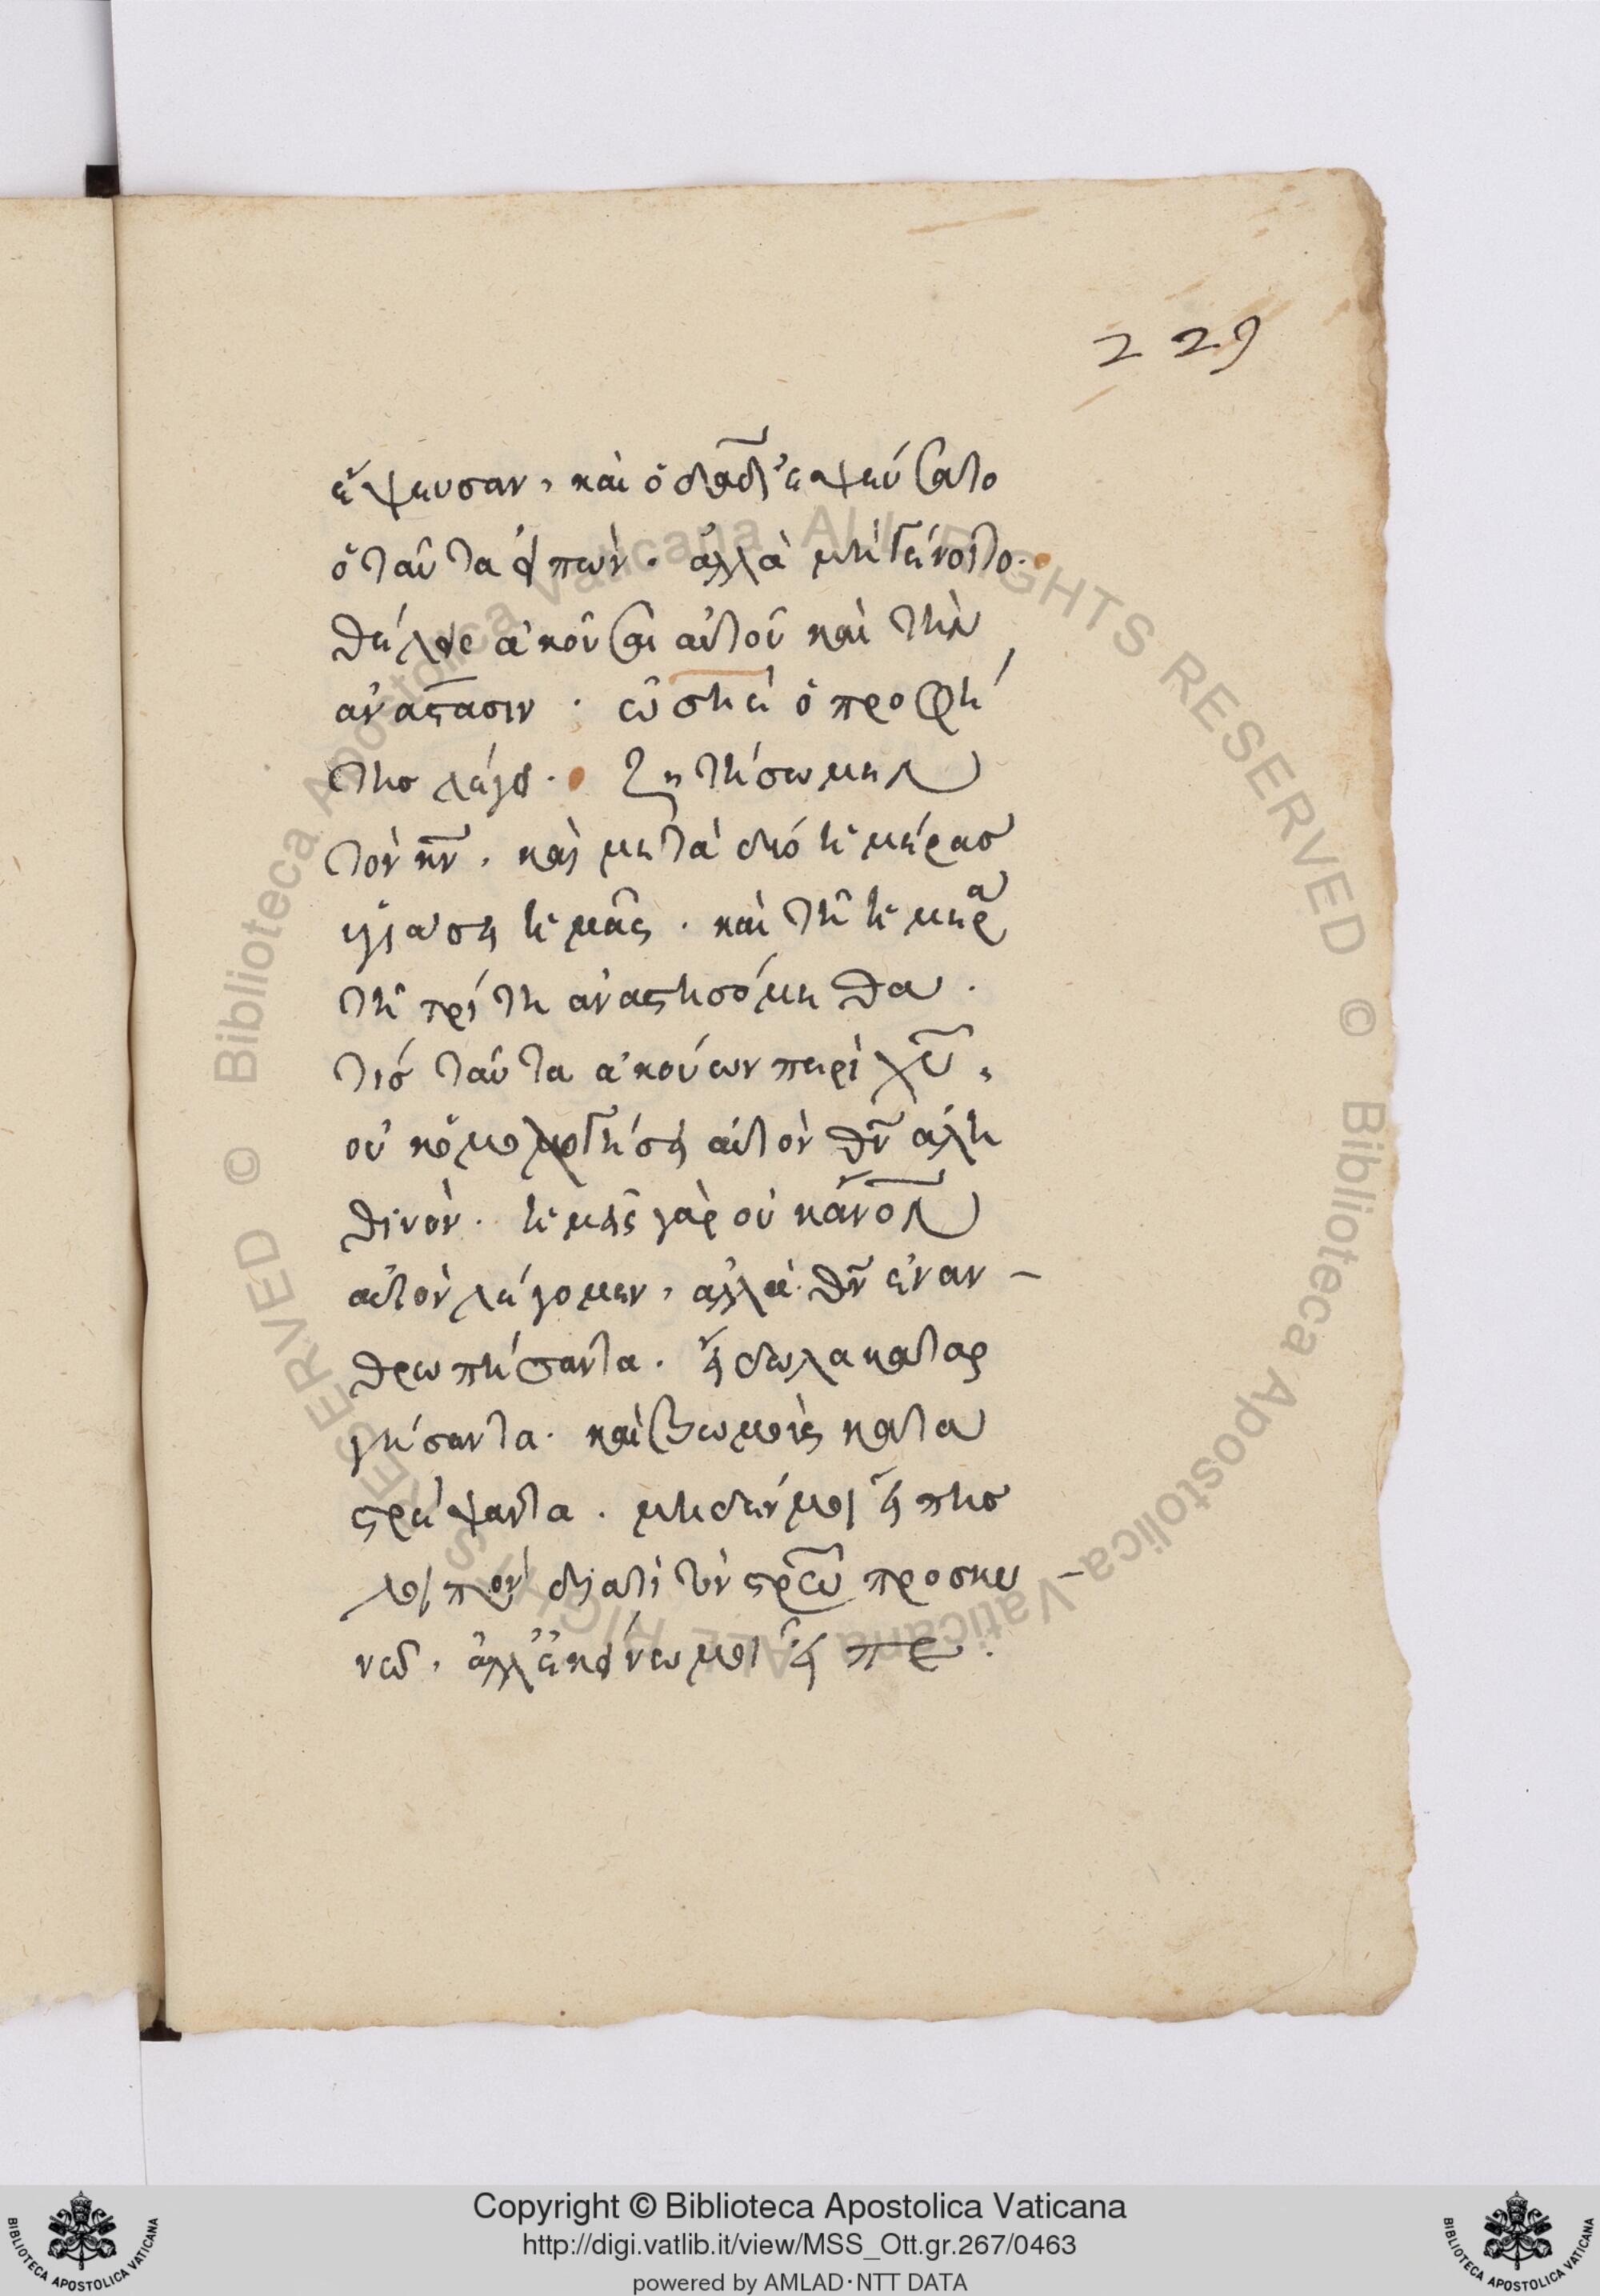 229
ἔψευσαν, καὶ ὁ δᾱδ ἐψεύσατο
ὁ ταῦτα εἰπών. ἀλλὰ μὴ γένοιτο.
θέλεις ἀκοῦσαι αὐτοῦ καὶ τὴν
ἀνάστασιν. ὡσηὲ ὁ προφή
της λέγει. ζητήσωμεν
τὸν κ̄ν̄. καὶ μετὰ δύο ἡμέρας
ὑγιάσει ἡμᾶς. καὶ τῇ ἡμέρα
τῇ τρίτη ἀναστησόμεθα.
τίς ταῦτα ἀκούων περὶ χ̄ῡ,
οὐχ ὁμολογήσει αὐτὸν θ̄ν̄ ἀλη
θινόν. ἡμεῖς γὰρ οὐκ ἄν̄ο̄ν̄
αὐτὸν λέγομεν, ἀλλὰ θ̄ν̄ ἐναν
θρωπήσαντα. εἴδωλα καταρ
γήσαντα. καὶ βωμοὺς κατα
στρέψαντα. μηδέν μοι εἴπης
λοιπὸν διατί τὸν στ̄ρ̄ο̄ν̄ προσκυ
νεῖς, ἀλλ' ἐκεῖνω μοι εἰπὲ.
Copyright © Biblioteca Apostolica Vaticana
http://digi.vatlib.it/view/MSS_Ott.gr.267/0463
powered by AMLAD·NTT DATA
BIBLIOTECA APOSTOLICA VATICANA
BIBLIOTECA APOSTOLICA VATICANA
© Biblioteca Apostolica Vaticana ALL RIGHTS RESERVED © Biblioteca Apostolica Vaticana ALL RIGHTS RESERVED